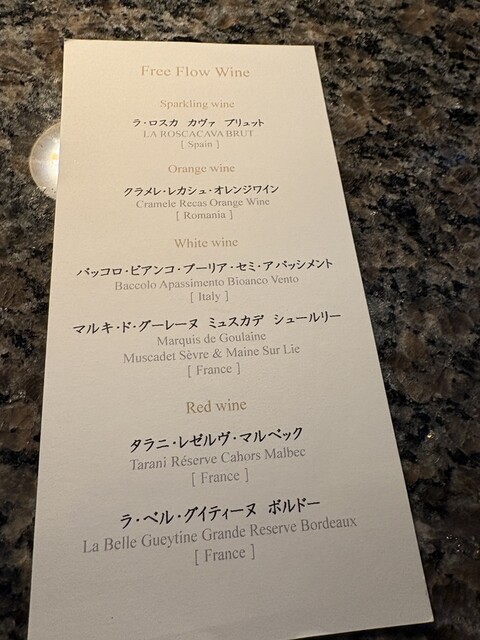 Free Flow Wine
Sparkling wine
ラ・ロスカ カヴァ ブリュット
LA ROSCACAVA BRUT
[ Spain ]
Orange wine
クラメレ・レカシュ・オレンジワイン
Cramele Recas Orange Wine
[ Romania ]
White wine
バッコロ・ビアンコ・プーリア・セミ・アパッシメント
Baccolo Apassimento Bioanco Vento
[ Italy ]
マルキ・ド・グーレーヌ ミュスカデ シュールリー
Marquis de Goulaine
Muscadet Sèvre & Maine Sur Lie
[ France ]
Red wine
タラニ・レゼルヴ・マルベック
Tarani Réserve Cahors Malbec
[ France ]
ラ・ベル・グイティーヌ ボルドー
La Belle Gueytine Grande Reserve Bordeaux
[ France ]